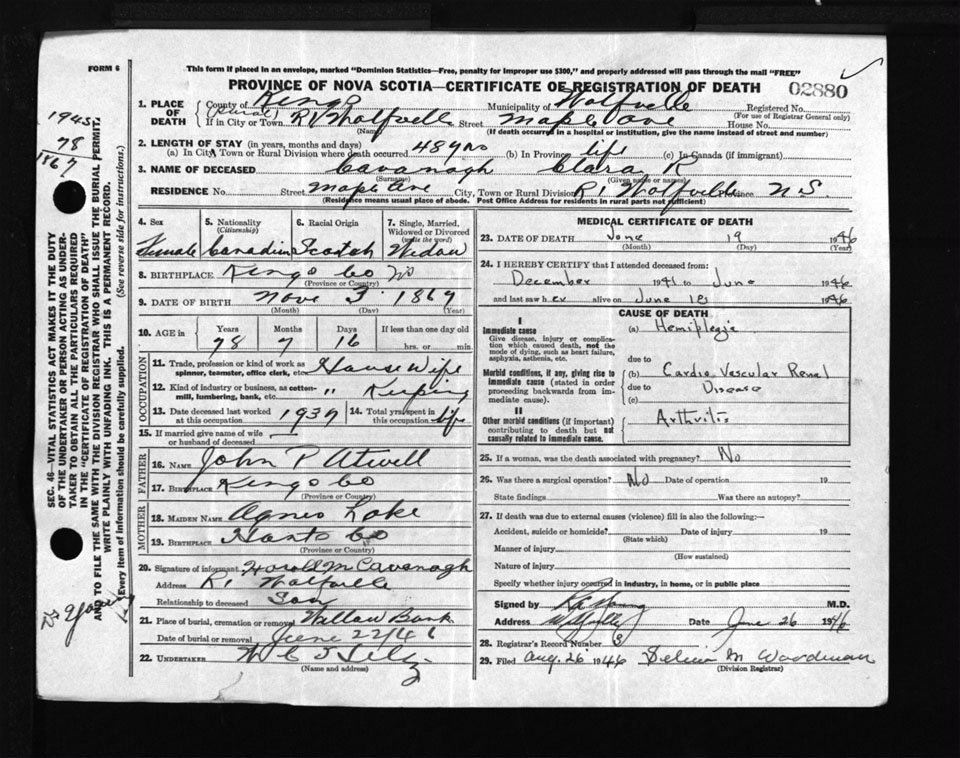 FORM 6
This form if placed in an envelope, marked "Dominion Statistics—Free, penalty for improper use $300," and properly addressed will pass through the mail "FREE"
PROVINCE OF NOVA SCOTIA—CERTIFICATE OF REGISTRATION OF DEATH
02880
1. PLACE OF DEATH
County of Kings
Municipality of Wolfville
Registered No.
(For use of Registrar General only)
(Rural)
If in City or Town R1 Wolfville Street Maple Ave House No.
(Name)
(If death occurred in a hospital or institution, give the name instead of street and number)
2. LENGTH OF STAY (in years, months and days)
(a) In City Town or Rural Division where death occurred 48 yrs (b) In Province life (c) In Canada (if immigrant)
3. NAME OF DECEASED Cavanagh Clara K
(Surname) (Given name or names)
RESIDENCE No. Street Maple Ave City, Town or Rural Division R1 Wolfville Province N S.
(Residence means usual place of abode. Post Office Address for residents in rural parts not sufficient)
4. Sex
Female
5. Nationality
(Citizenship)
Canadian
6. Racial Origin
Scotch
7. Single, Married, Widowed or Divorced
(write the word)
Widow
8. BIRTHPLACE Kings Co NS
(Province or Country)
9. DATE OF BIRTH Nov 3 1867
(Month) (Day) (Year)
10. AGE in
Years Months Days If less than one day old
78 7 16 hrs. or min.
OCCUPATION
11. Trade, profession or kind of work as spinner, teamster, office clerk, etc. House Wife
12. Kind of industry or business, as cotton-mill, lumbering, bank, etc. " Keeping
13. Date deceased last worked at this occupation 1937
14. Total yrs. spent in this occupation life
15. If married give name of wife or husband of deceased
FATHER
16. NAME John P Atwell
17. BIRTHPLACE Kings Co
(Province or Country)
MOTHER
18. MAIDEN NAME Agnes Lake
19. BIRTHPLACE Hants Co
(Province or Country)
20. Signature of informant Harold M Cavanagh
Address R1 Wolfville
Relationship to deceased Son
21. Place of burial, cremation or removal Willow Bank
Date of burial or removal June 22/46
22. UNDERTAKER
(Name and address)
MEDICAL CERTIFICATE OF DEATH
23. DATE OF DEATH June 19 1946
(Month) (Day) (Year)
24. I HEREBY CERTIFY that I attended deceased from:
December 1941 to June 1946
and last saw her alive on June 18 1946
CAUSE OF DEATH
I
Immediate cause
Give disease, injury or complication which caused death, not the mode of dying, such as heart failure, asphyxia, asthenia, etc.
(a) Hemiplegia
due to
Morbid conditions, if any, giving rise to immediate cause (stated in order proceeding backwards from immediate cause).
(b) Cardio Vascular Renal
due to Disease
(c)
II
Other morbid conditions (if important) contributing to death but not causally related to immediate cause.
Arthritis
25. If a woman, was the death associated with pregnancy? No
26. Was there a surgical operation? No Date of operation 19
State findings Was there an autopsy?
27. If death was due to external causes (violence) fill in also the following:—
Accident, suicide or homicide? Date of injury 19
(State which)
Manner of injury
(How sustained)
Nature of injury
Specify whether injury occurred in industry, in home, or in public place
Signed by M.D.
Address Wolfville Date June 26 1946
28. Registrar's Record Number 3
29. Filed Aug. 26 1946 M Woodman
(Division Registrar)
SEC. 46—VITAL STATISTICS ACT MAKES IT THE DUTY OF THE UNDERTAKER OR PERSON ACTING AS UNDERTAKER TO OBTAIN ALL THE PARTICULARS REQUIRED IN THE "CERTIFICATE OF REGISTRATION OF DEATH" AND TO FILE THE SAME WITH THE DIVISION REGISTRAR WHO SHALL ISSUE THE BURIAL PERMIT.
WRITE PLAINLY WITH UNFADING INK. THIS IS A PERMANENT RECORD.
Every item of information should be carefully supplied. (See reverse side for instructions.)
1945
78
1867
Dr Young